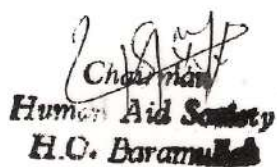 Chairman
Human Aid Society
H.O. Baramulla